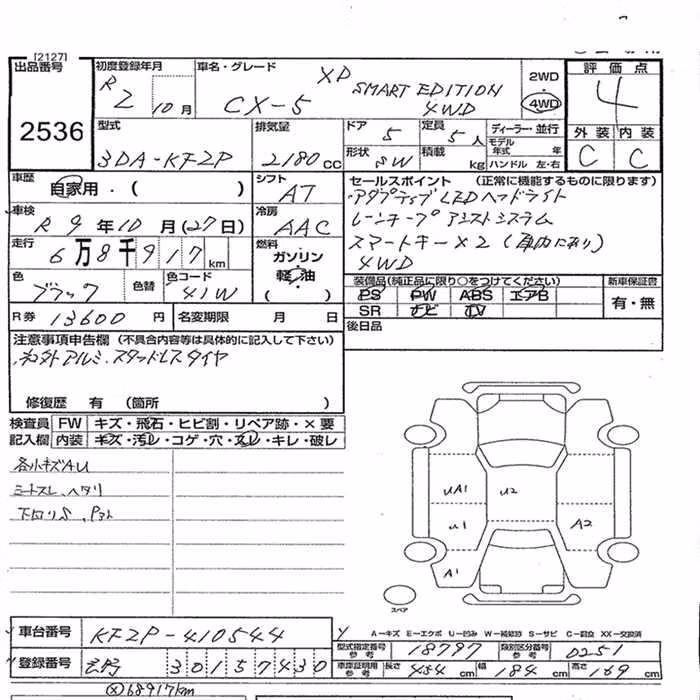 [2127]
出品番号 2536
初度登録年月 R2 10月
車名・グレード CX-5 XD SMART EDITION 4WD
2WD 4WD
評価点 4
外装 内装
C C
型式 3DA-KF2P
排気量 2180cc
ドア 5 定員 5人
形状 SW 積載 kg
ディーラー・並行
モデル年式 年
ハンドル 左・右
車歴 自家用・( )
シフト AT
車検 R9年10月(27日)
冷房 AAC
走行 6万8千917km
燃料 ガソリン 軽油 ( )
色 ブラック 色替 色コード 41W
R券 13600円 名変期限 月 日
セールスポイント (正常に機能するものに限ります)
アダプティブLEDヘッドライト
レーンキープアシストシステム
スマートキー×2(車内にあり)
4WD
装備品(純正品に限り○をつけてください)
PS PW ABS エアB
SR ナビ TV
新車保証書
有・無
後日品
注意事項申告欄 (不具合内容等は具体的に記入して下さい)
社外アルミ、スタッドレスタイヤ
修復歴 有 (箇所
検査員 FW キズ・飛石・ヒビ割・リペア跡・×要
記入欄 内装 キズ・汚レ・コゲ・穴・スレ・キレ・破レ
各小キズAU
シートスレ、ヘタリ
下回りS、
UA1 U2
U1 A2
A1
スペア
A−キズ E−エクボ U−凹み W−補修跡 S−サビ C−腐食 XX−交換済
車台番号 KF2P-410544
型式指定番号 参考 18797 類別区分番号 参考 0251
登録番号 301 5 7430
車庫証明用 参考 長さ 454cm 幅 184cm 高さ 169cm
68917km